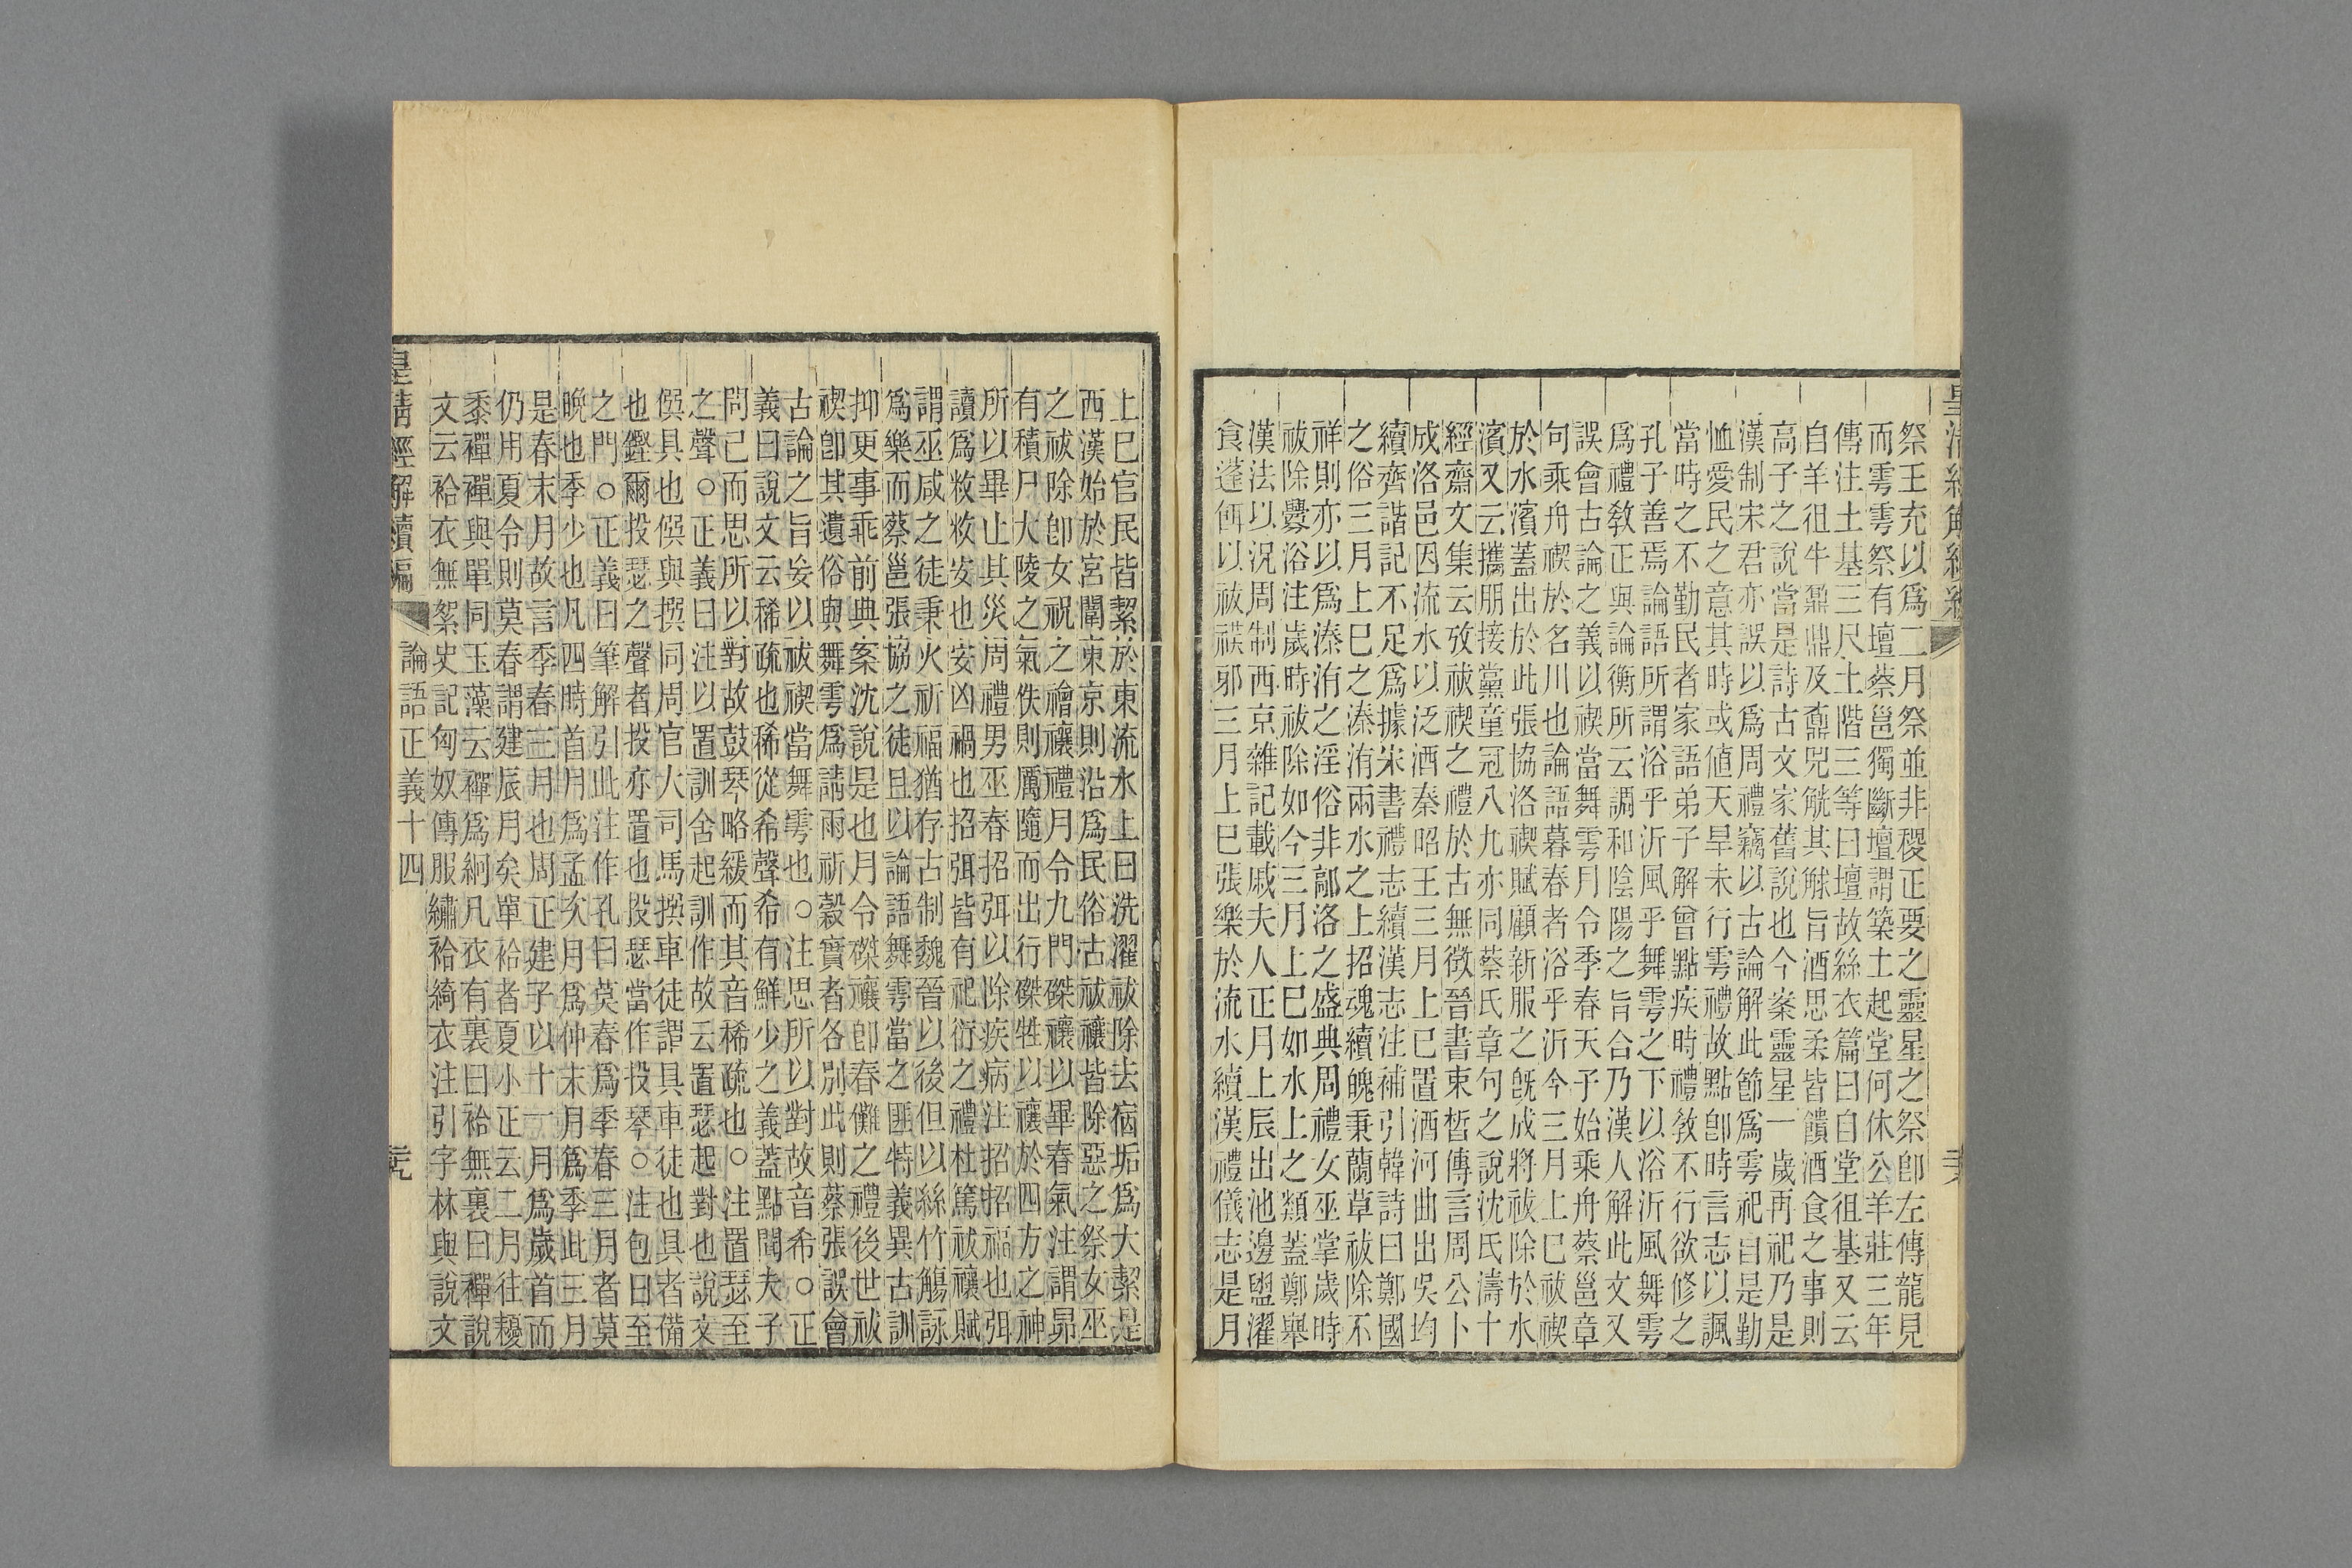 祭王充以爲二月祭並非稷正要之靈星之祭卽左傳龍見
而雩雩祭有壇蔡邕獨斷壇謂築土起堂何休公羊莊三年
傳注土基三尺土階三等曰壇故絲衣篇曰自堂徂基又云
自羊徂牛鼐鼎及鼒兕觥其觩旨酒思柔皆饋酒食之事則
高子之說當是詩古文家舊說也今案靈星一歲再祀乃是
漢制宋君亦誤以爲周禮竊以古論解此節爲雩祀自是勤
恤愛民之意其時或値天旱未行雩禮故點卽時言志以諷
當時之不勤民者家語弟子解曾點疾時禮敎不行欲修之
孔子善焉論語所謂浴乎沂風乎舞雩之下以浴沂風舞雩
爲禮敎正與論衡所云調和陰陽之旨合乃漢人解此文又
誤會古論之義以禊當舞雩月令季春天子始乘舟蔡邕章
句乘舟禊於名川也論語暮春者浴乎沂今三月上巳祓禊
於水濱蓋出於此張協洛禊賦顧新服之旣成將祓除於水
濱又云攜朋接黨童冠八九亦同蔡氏章句之說沈氏濤十
經齋文集云攷祓禊之禮於古無徵晉書束晳傳言周公卜
成洛邑因流水以泛酒秦昭王三月上巳置酒河曲出吳均
續齊諧記不足爲據宋書禮志續漢志注補引韓詩曰鄭國
之俗三月上巳之溱洧兩水之上招魂續魄秉蘭草祓除不
祥則亦以爲溱洧之淫俗非鄗洛之盛典周禮女巫掌歲時
祓除釁浴注歲時祓除如今三月上巳如水上之類蓋鄭舉
漢法以況周制西京雜記載戚夫人正月上辰出池邊盥濯
食蓬餌以祓禊邪三月上巳張樂於流水續漢禮儀志是月
上巳官民皆絜於東流水上曰洗濯祓除去宿垢爲大絜是
西漢始於宮闈東京則沿爲民俗古祓禳皆除惡之祭女巫
之祓除卽女祝之禬禳禮月令九門磔禳以畢春氣注謂昴
有積尸大陵之氣佚則厲隨而出行磔牲以禳於四方之神
所以畢止其災周禮男巫春招弭以除疾病注招招福也弭
讀爲敉敉安也安凶禍也招弭皆有祀衍之禮杜篤祓禳賦
謂巫咸之徒秉火祈福猶存古制魏晉以後但以絲竹觴詠
爲樂而蔡邕張協之徒且以論語舞雩當之匪特義異古訓
抑更事乖前典案沈說是也月令磔禳卽春儺之禮後世祓
禊卽其遺俗與舞雩爲請雨祈穀實者各別此則蔡張誤會
古論之旨妄以祓禊當舞雩也○注思所以對故音希○正
義曰說文云稀疏也稀從希聲希有鮮少之義蓋點聞夫子
問己而思所以對故鼓琴略緩而其音稀疏也○注置瑟至
之聲○正義曰注以置訓舍起訓作故云置瑟起對也說文
僎具也僎與撰同周官大司馬撰車徒譔具車徒也具者備
也鏗爾投瑟之聲者投亦置也投瑟當作投琴○注包曰至
之門○正義曰筆解引此注作孔曰莫春爲季春三月者莫
晩也季少也凡四時首月爲孟次月爲仲末月爲季此三月
是春末月故言季春三月也周正建子以十一月爲歲首而
仍用夏令則莫春謂建辰月矣單袷者夏小正云二月往耰
黍襌襌與單同玉藻云襌爲絅凡衣有裏曰袷無裏曰襌說
文云袷衣無絮史記匈奴傳服繡袷綺衣注引字林與說文
皇清經解續編　論語正義十四　完